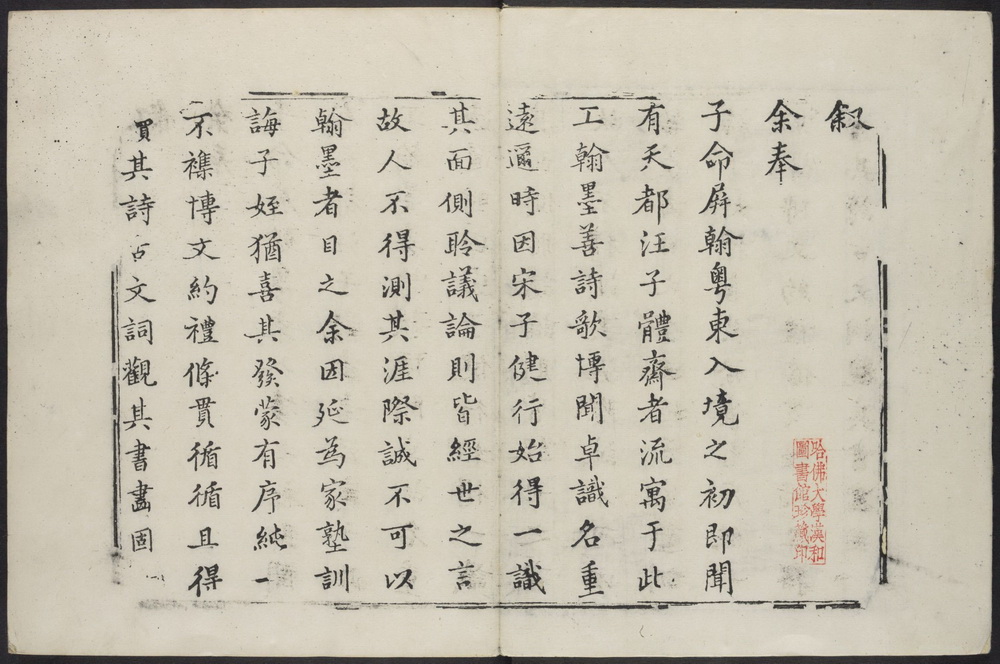 叙
余奉
子命屛翰粤東入境之初即聞
有天都汪子體齋者流寓于此
工翰墨善詩歌博聞卓識名重
遠邇時因宋子健行始得一識
其面側聆議論則皆經世之言
故人不得測其涯際誠不可以
翰墨者目之余因延為家塾訓
誨子姪猶喜其發蒙有序純一
不襍博文約禮條貫循循且得
買其詩古文詞觀其書畫固
哈佛大學漢和
圖書館珍藏印